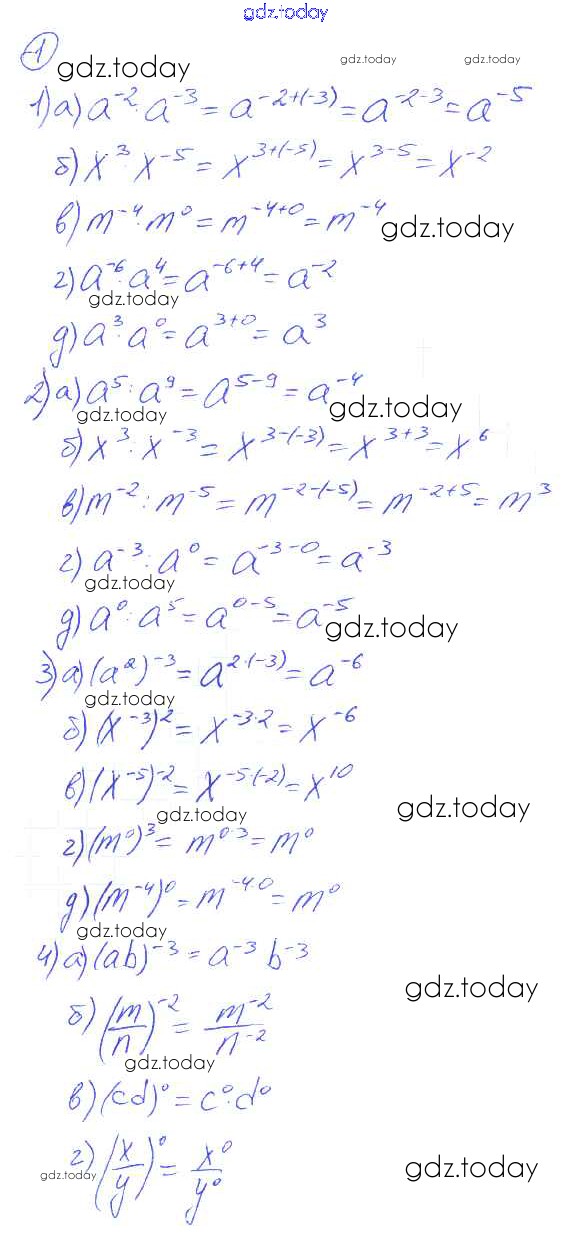 gdz.today
1
gdz.today gdz.today gdz.today
1) а) a⁻² · a⁻³ = a⁻²⁺⁽⁻³⁾ = a⁻²⁻³ = a⁻⁵
б) x³ · x⁻⁵ = x³⁺⁽⁻⁵⁾ = x³⁻⁵ = x⁻²
в) m⁻⁴ · m⁰ = m⁻⁴⁺⁰ = m⁻⁴
gdz.today
г) a⁻⁶ · a⁴ = a⁻⁶⁺⁴ = a⁻²
gdz.today
д) a³ · a⁰ = a³⁺⁰ = a³
2) а) a⁵ : a⁹ = a⁵⁻⁹ = a⁻⁴
gdz.today gdz.today
б) x³ : x⁻³ = x³⁻⁽⁻³⁾ = x³⁺³ = x⁶
в) m⁻² : m⁻⁵ = m⁻²⁻⁽⁻⁵⁾ = m⁻²⁺⁵ = m³
г) a⁻³ : a⁰ = a⁻³⁻⁰ = a⁻³
gdz.today
д) a⁰ : a⁵ = a⁰⁻⁵ = a⁻⁵
gdz.today
3) а) (a²)⁻³ = a²·⁽⁻³⁾ = a⁻⁶
gdz.today
б) (x⁻³)² = x⁻³·² = x⁻⁶
в) (x⁻⁵)⁻² = x⁻⁵·⁽⁻²⁾ = x¹⁰
gdz.today gdz.today
г) (m⁰)³ = m⁰·³ = m⁰
д) (m⁻⁴)⁰ = m⁻⁴·⁰ = m⁰
gdz.today
4) а) (ab)⁻³ = a⁻³ b⁻³
gdz.today
б) (m/n)⁻² = m⁻²/n⁻²
gdz.today
в) (cd)⁰ = c⁰ · d⁰
г) (x/y)⁰ = x⁰/y⁰
gdz.today gdz.today